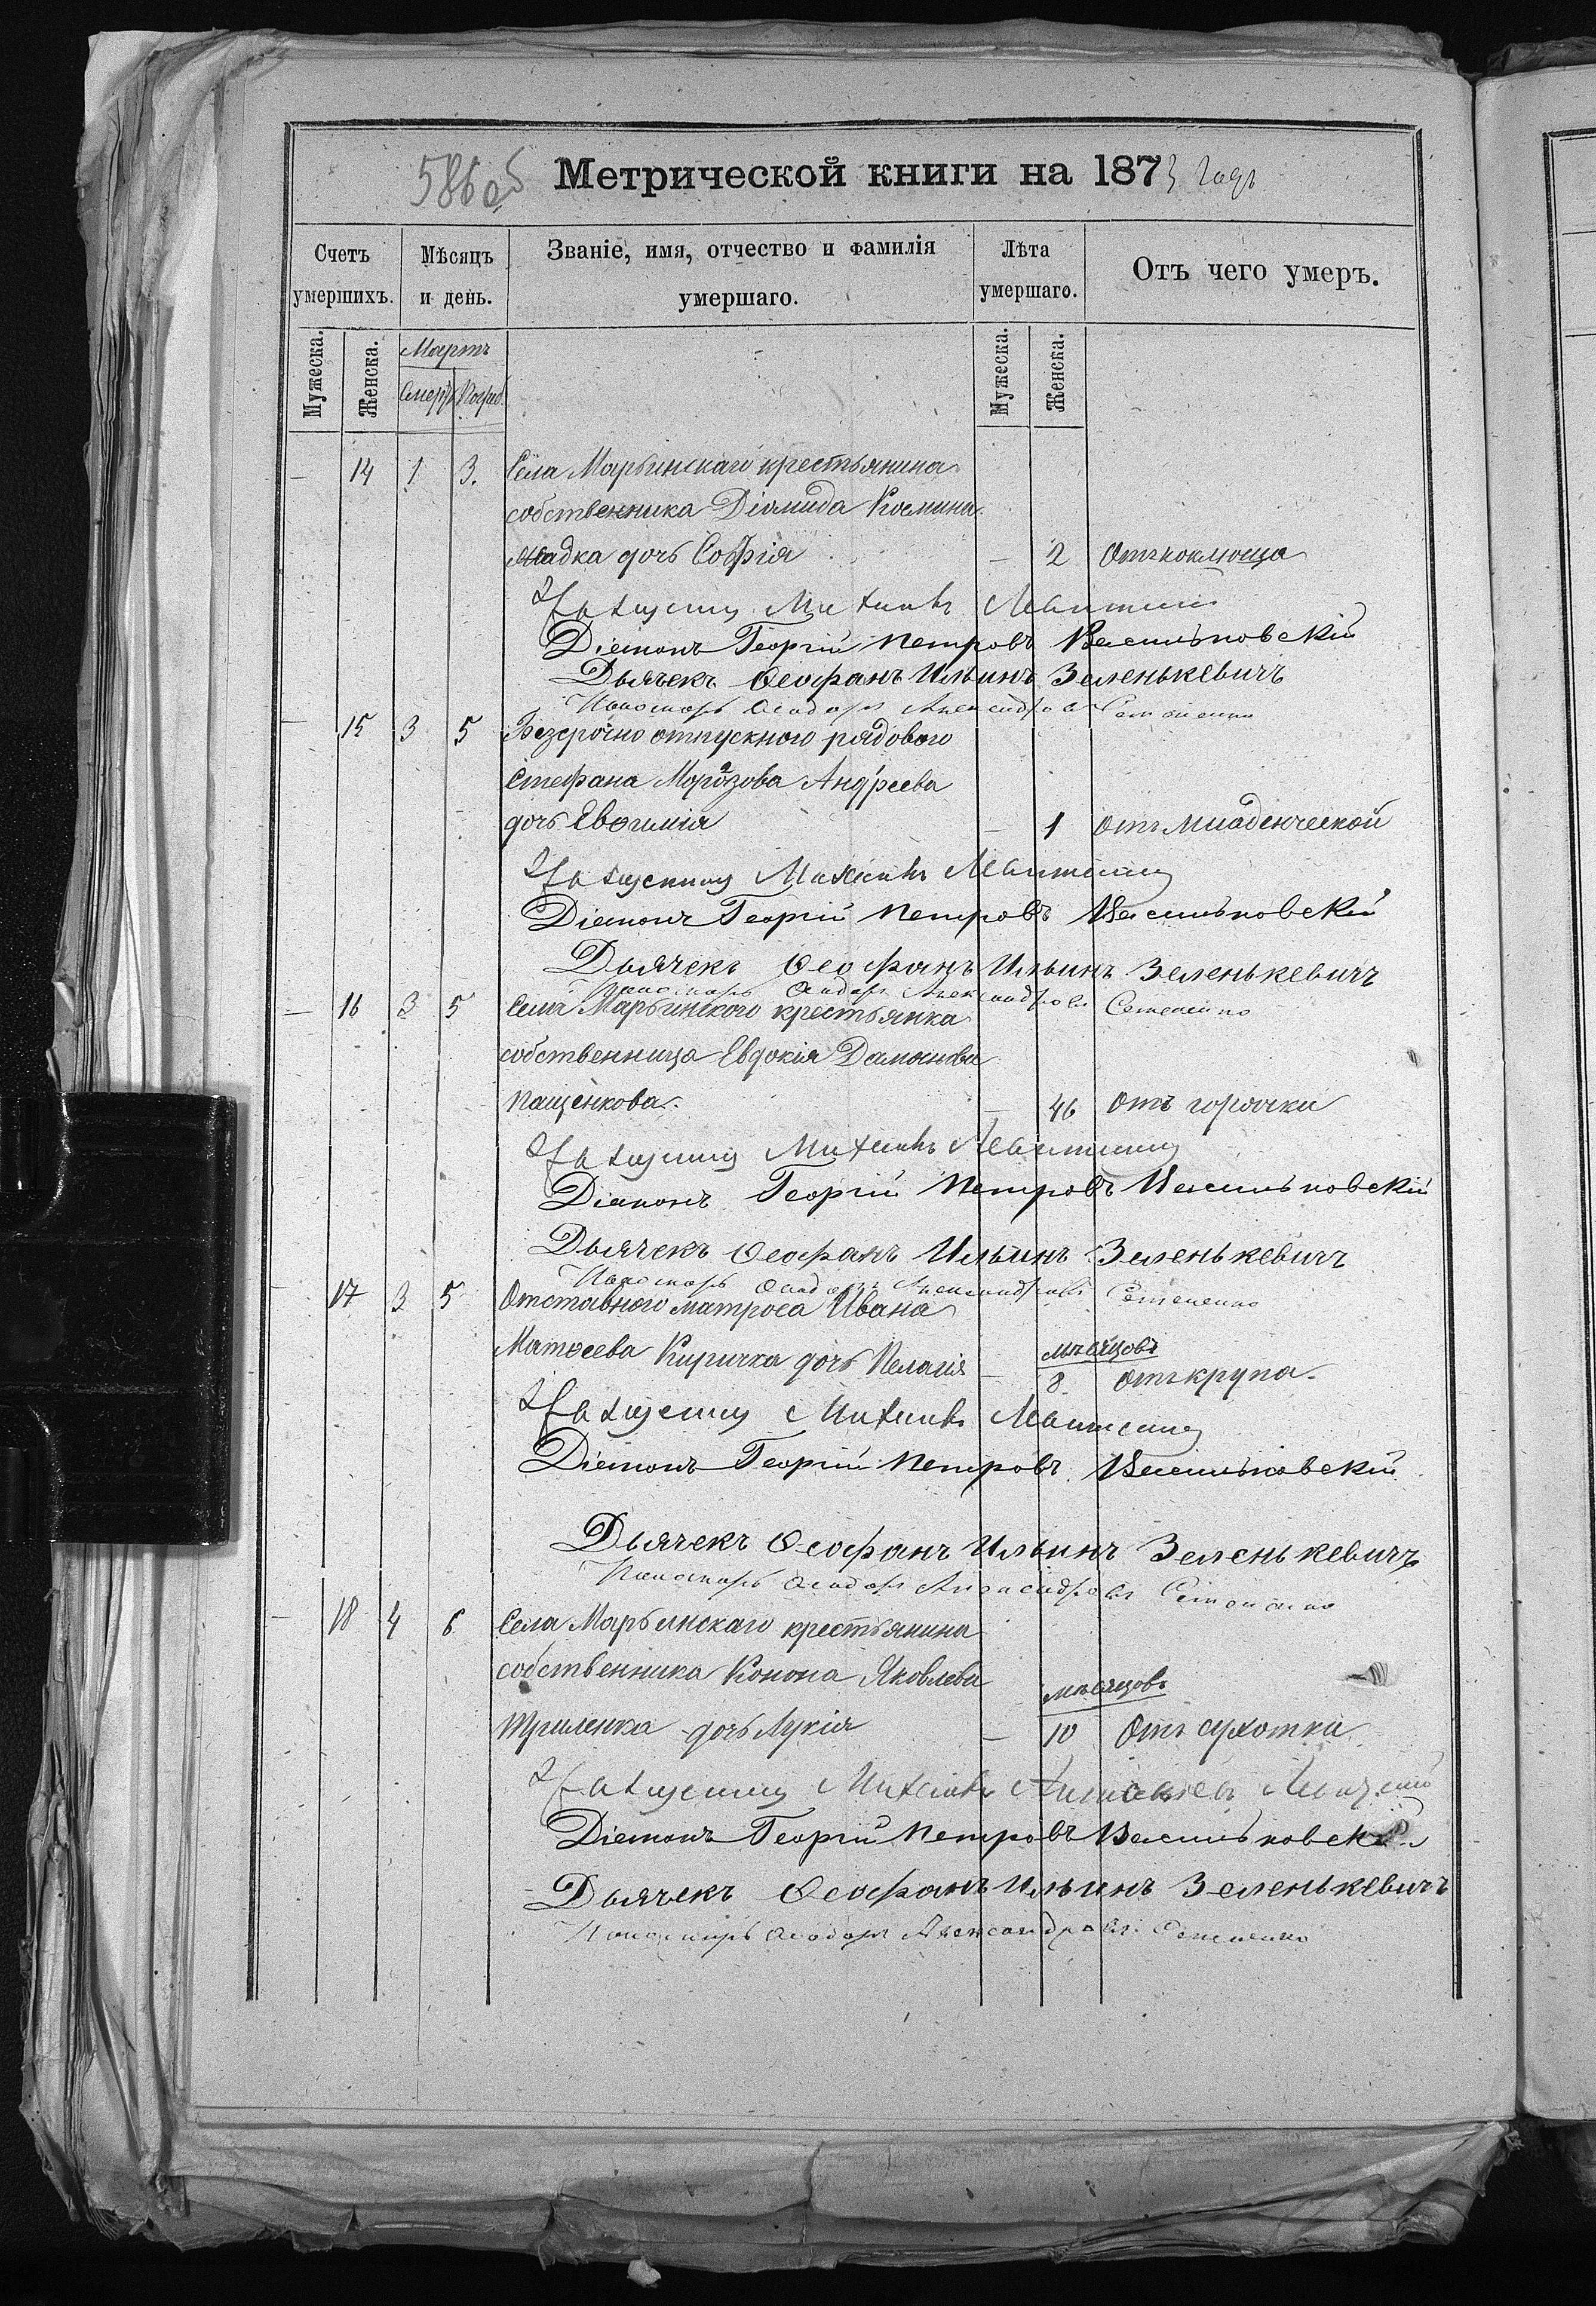 586 об Метрической книги на 1873 годъ
Счетъ умершихъ. Мѣсяцъ и день. Званіе, имя, отчество и фамилія умершаго. Лѣта умершаго. Отъ чего умеръ.
Мужеска. Женска. Мартъ Мужеска. Женска.
Смерт. Погреб.
— 14 1 3. Села Марьинскаго крестьянина
собственника Діомида Косьмина
дочь Софія — 2 Отъ коклюша
Священникъ Михаилъ
Діаконъ Георгій Петровъ Васильковскій
Дьячекъ Ѳеофанъ Ильинъ Зеленькевичъ
Пономарь Ѳеодоръ Александровъ
— 15 3 5 Безсрочно отпускного рядового
Стефана Морозова Андреева
дочь Евѳимія — 1 Отъ младенческой
Священникъ Михаилъ
Діаконъ Георгій Петровъ Васильковскій
Дьячекъ Ѳеофанъ Ильинъ Зеленькевичъ
Пономарь Ѳеодоръ Александровъ
— 16 3 5 Села Марьинского крестьянка
собственница Евдокія Даміанова
Пащенкова. — 46 Отъ горячки
Священникъ Михаилъ
Діаконъ Георгій Петровъ Васильковскій
Дьячекъ Ѳеофанъ Ильинъ Зеленькевичъ
Пономарь Ѳеодоръ Александровъ
17 3 5 Отставного матроса Ивана
Матѳеева Киричка дочь Пелагія — мѣсяцовъ 8 Отъ крупа.
Священникъ Михаилъ
Діаконъ Георгій Петровъ Васильковскій
Дьячекъ Ѳеофанъ Ильинъ Зеленькевичъ
Пономарь Ѳеодоръ Александровъ
— 18 4 6 Села Марьинскаго крестьянина
собственника Конона Яковлева
дочь Лукія — мѣсяцовъ 10 Отъ сухотки
Священникъ Михаилъ
Діаконъ Георгій Петровъ Васильковскій
Дьячекъ Ѳеофанъ Ильинъ Зеленькевичъ
Пономарь Ѳеодоръ Александровъ